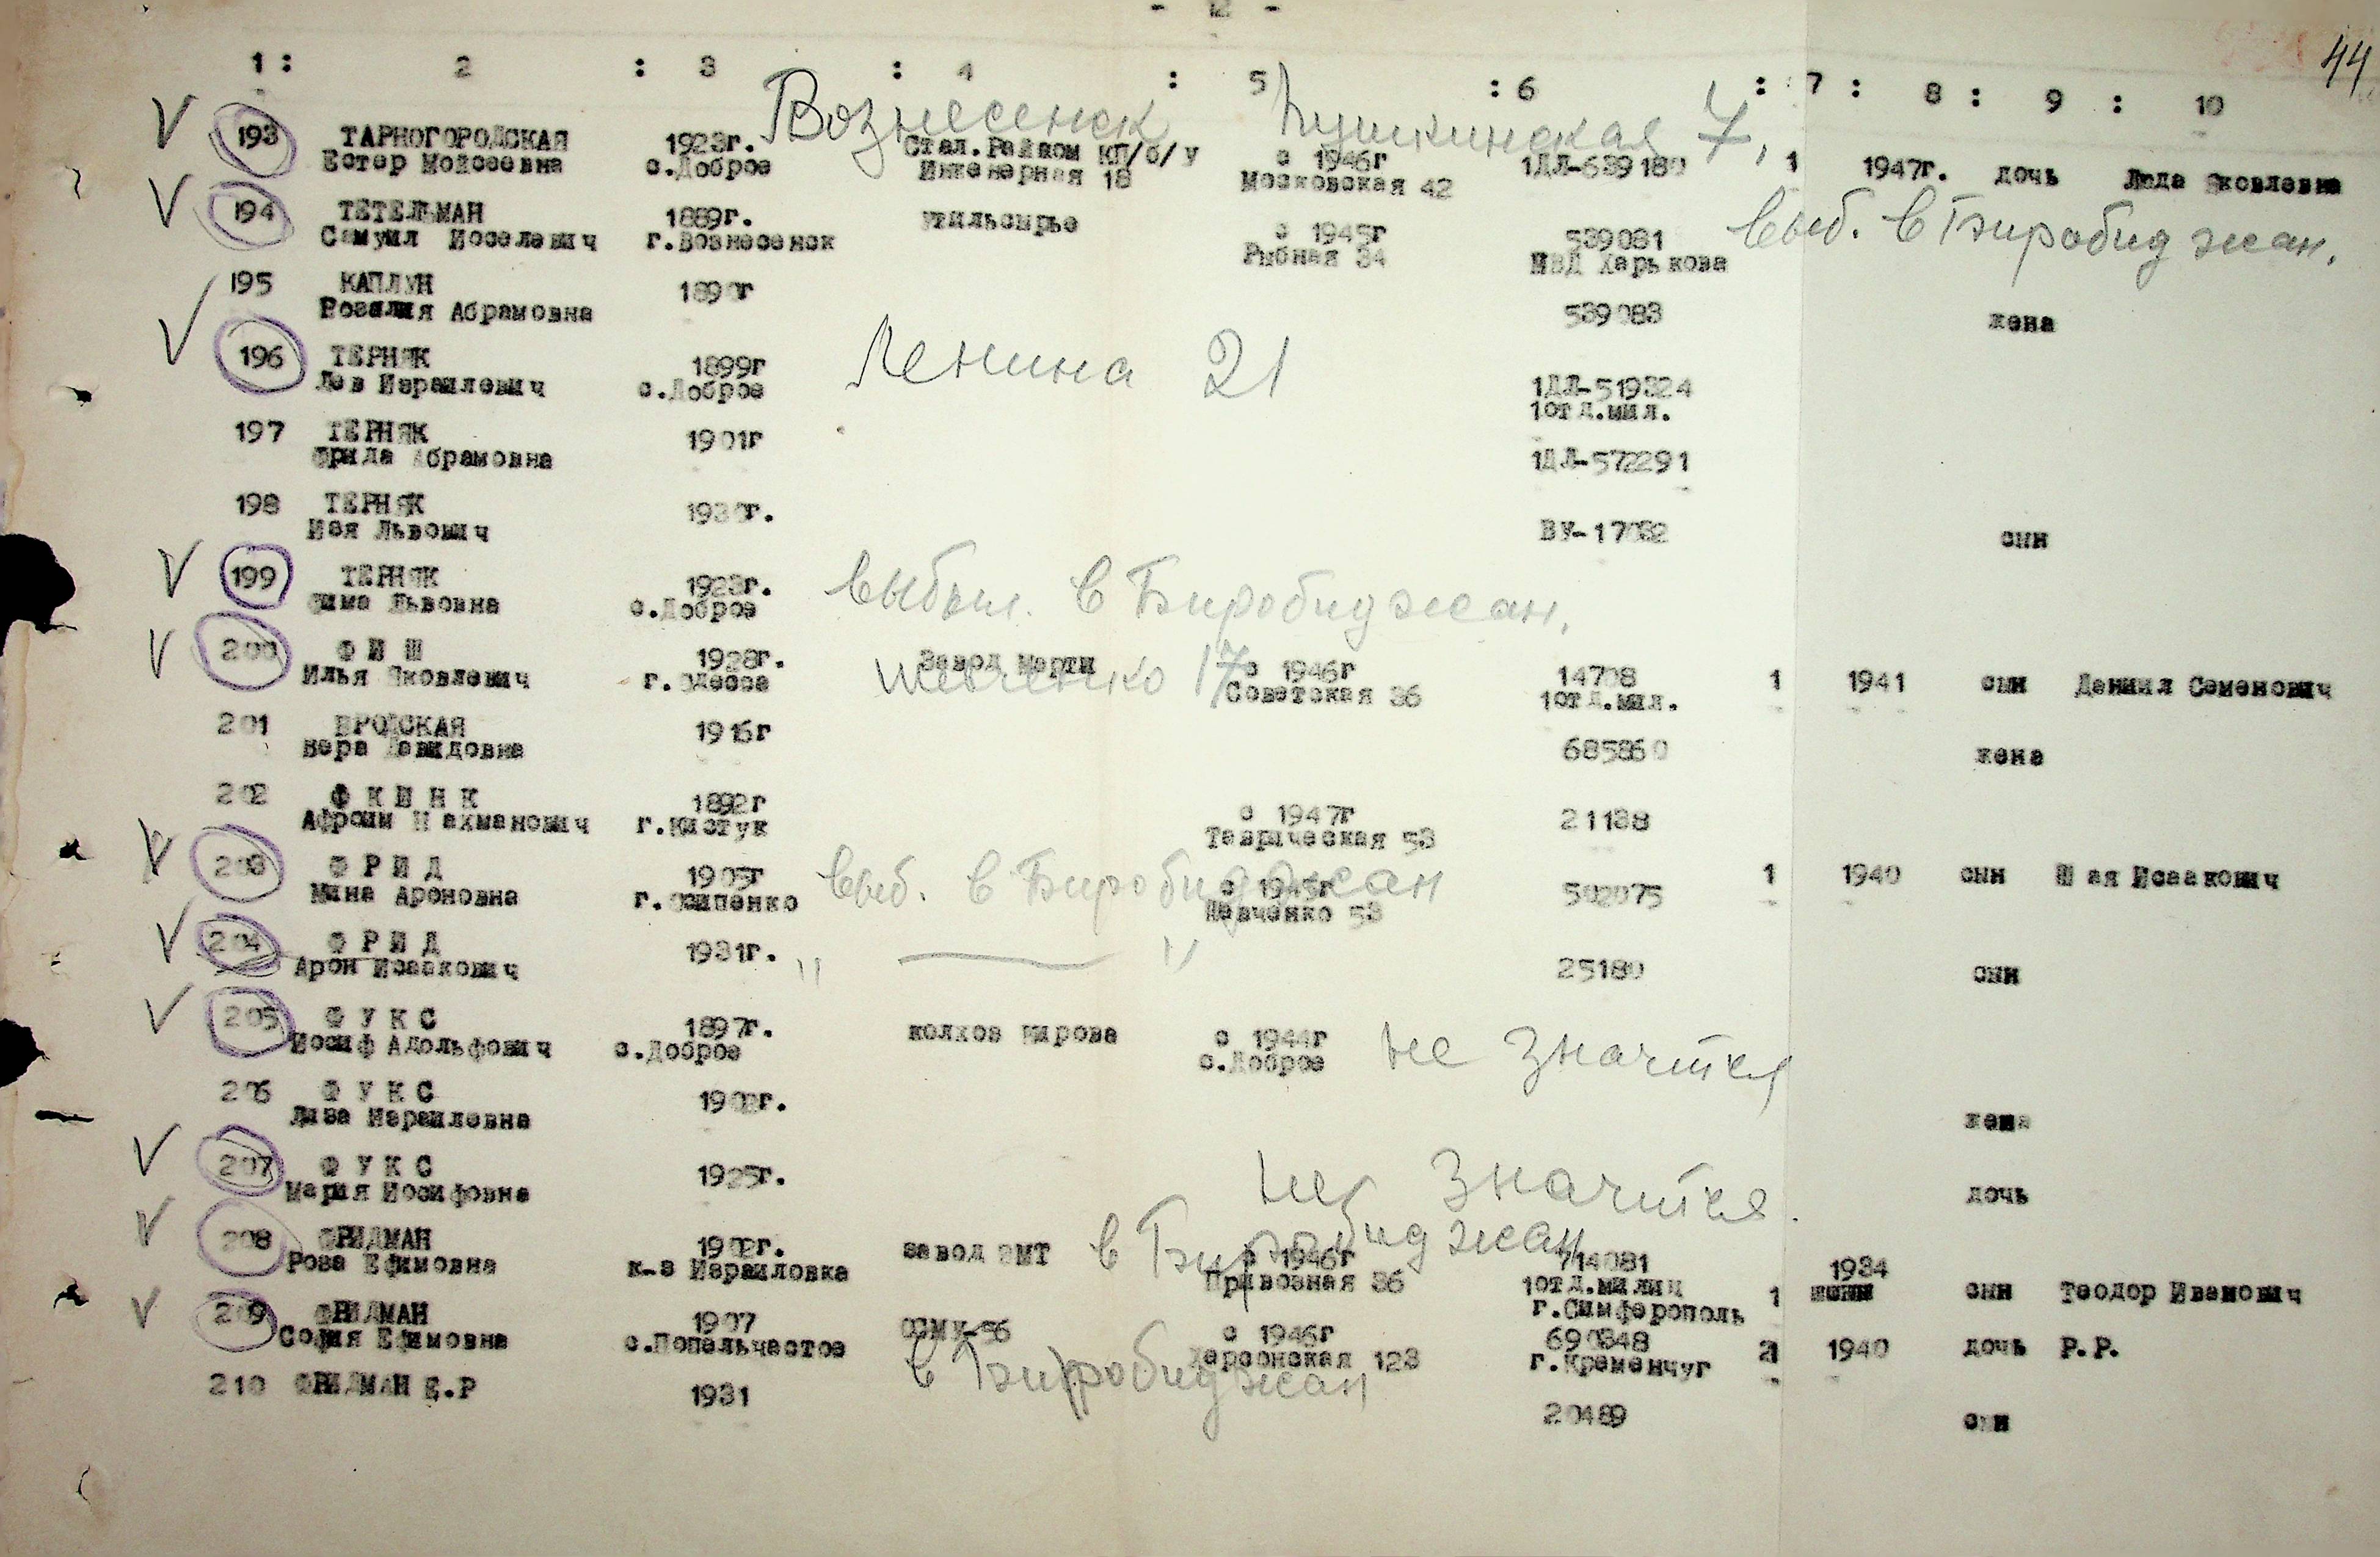 - 12 -
44
1 : 2 : 3 : 4 : 5 : 6 : 7 : 8 : 9 : 10
Вознесенск Пушкинская 7,
193 ТАРНОГОРОДСКАЯ 1923г. Стал.Райком КП/б/у с 1946г 1ДЛ-639180 1 1947г. дочь Люда Яковлевна
Естер Мойсеевна с.Доброе Инженерная 18 Московская 42
194 ТЕТЕЛЬМАН 1889г. утильсырье с 1945г 539081 выб. в Биробиджан.
Самуил Иоселевич г.Вознесенск Рыбная 34 МВД Харькова
195 КАПЛУН 1890г 539083 жена
Розалия Абрамовна
196 ТЕРНЯК 1899г Ленина 21 1ДЛ-519324
Лев Израилевич с.Доброе 1отд.мил.
197 ТЕРНЯК 1901г 1ДЛ-572291
Фрида Абрамовна
198 ТЕРНЯК 193 г. ВУ-17032 сын
Изя Львович
199 ТЕРНЯК 1923г. выбыл. в Биробиджан.
Фима Львовна с.Доброе
200 Ф И Ш 1928г. Завод Марти с 1946г 14708 1 1941 сын Даниил Семенович
Илья Яковлевич г.Одесса Шевченко 17 Советская 36 1отд.мил.
201 БРОДСКАЯ 1916г 685860 жена
Вера Давидовна
202 Ф К Е Н К 1892г с 1947г 21138
Афроим Нахманович г.Кистук Таврическая 53
203 Ф Р И Д 1905г выб. в Биробиджан с 1945г 502075 1 1940 сын Шая Исаакович
Мина Ароновна г.Осипенко Шевченко 53
204 Ф Р И Д 1931г. " — " 25180 сын
Арон Исаакович
205 Ф У К С 1897г. колхоз Кирова с 1944г не значится
Иосиф Адольфович с.Доброе с.Доброе
206 Ф У К С 1902г. жена
Лиза Израилевна
207 Ф У К С 1925г. не значится. дочь
Мария Иосифовна
208 ФРИДМАН 1902г. завод ЭМТ в Биробиджан с 1946г 714081 1934
Роза Ефимовна к-з Израиловка Привозная 36 1отд.милиц 1 сын Теодор Иванович
г.Симферополь
209 ФРИДМАН 1907 ОСМУ-56 с 1946г 690348 2 1940 дочь Р.Р.
София Ефимовна с.Попельчастое Херсонская 123 г.Кременчуг
в Биробиджан
210 ФРИДМАН Е.Р 1931 20489 сын